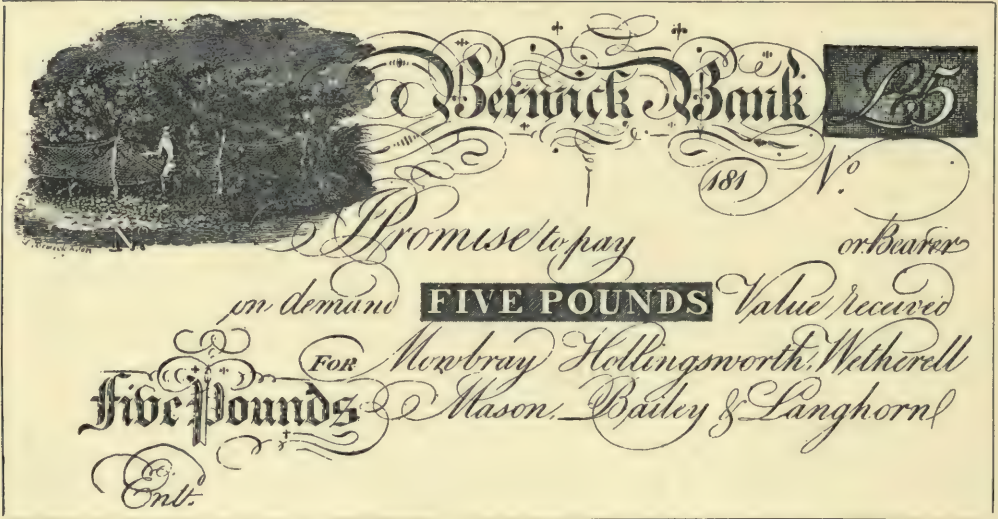 Berwick Bank £5
181 No.
No.
I Promise to pay or Bearer
on demand FIVE POUNDS Value received
FOR Mowbray Hollingsworth, Wetherell
Five Pounds Mason, Bailey & Langhorn
Ent.